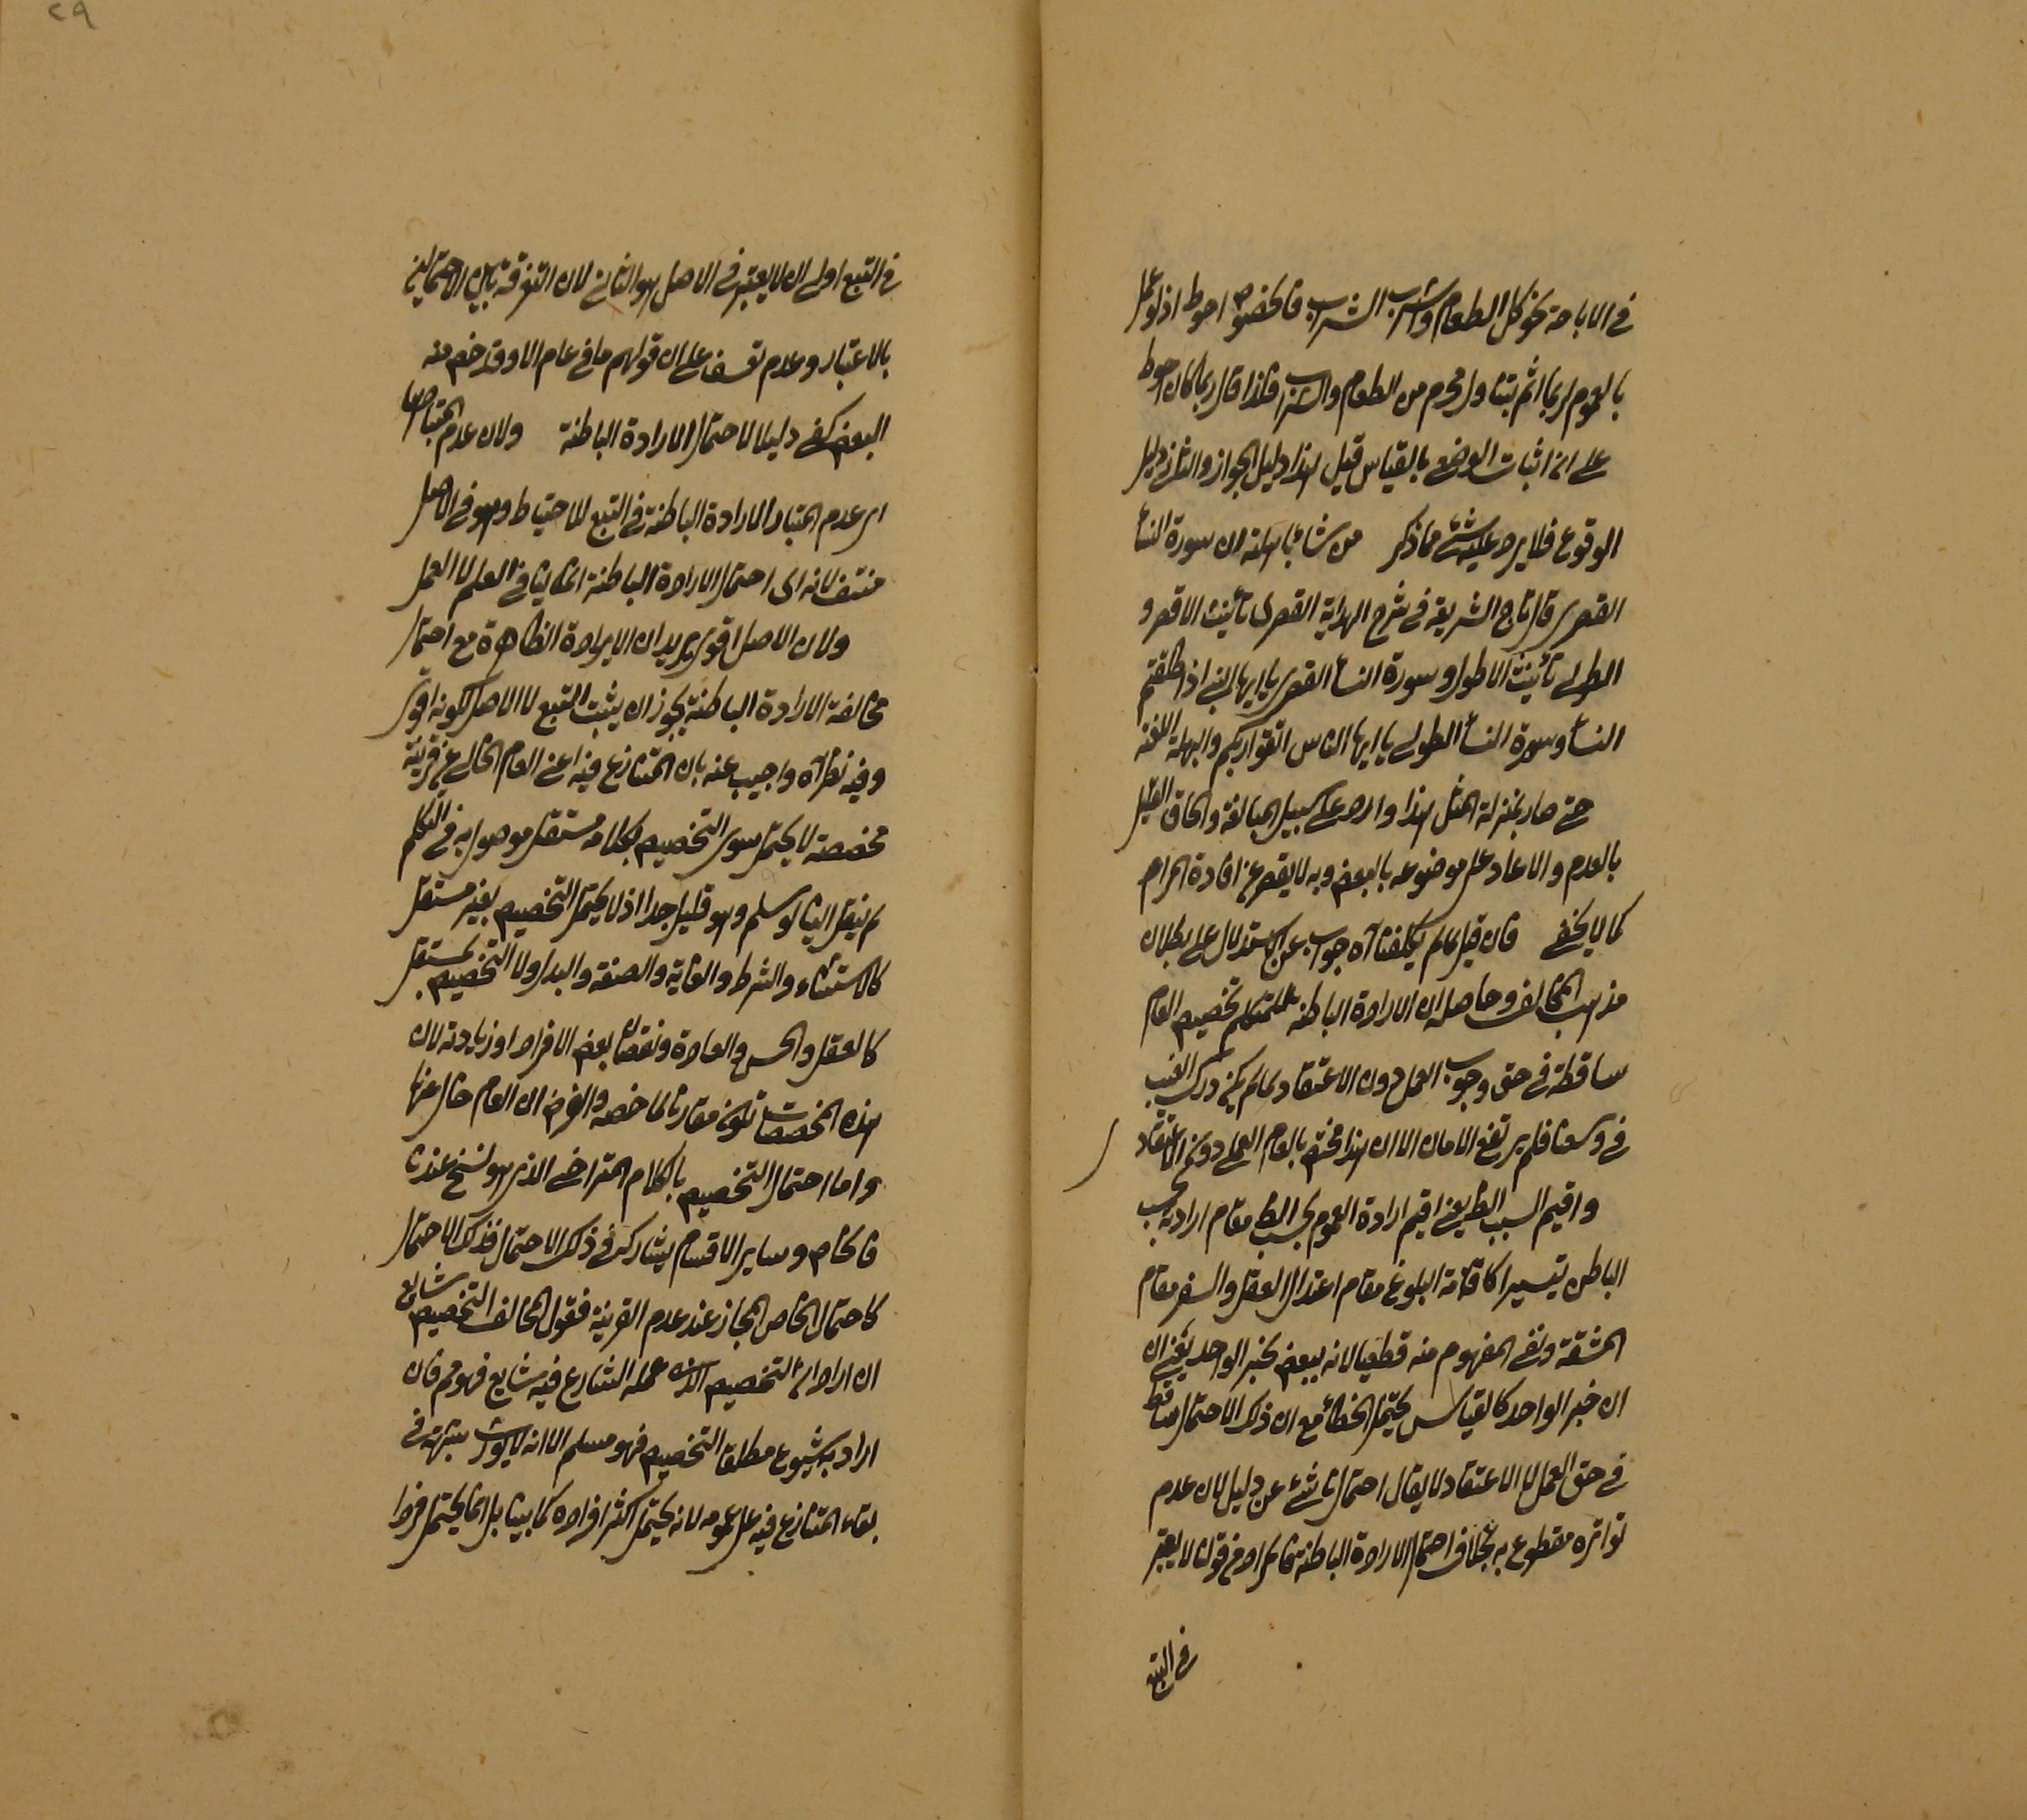 في الاباحة نحو كل الطعام واشرب الشراب فالخصوص احوط اذ لو عمل
بالعموم ربما اثم بتناول محرم من الطعام والشراب فلذا قال ربما كان احوط
على انه اثبات الوضع بالقياس قيل هذا دليل الجواز والثاني دليل
الوقوع فلا يرد عليه شئ مما ذكر من شاء باهلته ان سورة النساء
القصرى قال تاج الشريعة في شرح الهداية القصرى تأنيث الاقصر و
الطولى تأنيث الاطول وسورة النساء القصرى يا ايها النبي اذا طلقتم
النساء وسورة النساء الطولى يا ايها الناس اتقوا ربكم والبهلة اللعنة
حتى صار بمنزلة المثل هذا وارد على سبيل المبالغة والحاق القليل
بالعدم والا عاد على موضوعه بالبعض وبه لا يقصر عن افادة المرام
كما لا يخفى فان قيل لما لم يكلفنا اه جواب عن الاستدلال على بطلان
مذهب المخالف وحاصله ان الارادة الباطنة للمتكلم تخصيص العام
ساقطة في حق وجوب العمل دون الاعتقاد لما لم يكن درك الغيب
في وسعنا فلم يرتفع الامان الا ان هذا مختص بالعام العملي دون الاعتقاد
واقيم السبب الظ يعني اقيم ارادة العموم بحسب الظ مقام ارادته بحسب
الباطن تيسيرا كاقامة البلوغ مقام اعتدال العقل والسفر مقام
المشقة ونفى المفهوم منه قطعيا لانه يبعض بخبر الواحد يعني ان
ان خبر الواحد كالقياس يحتمل الخطأ مع ان ذلك الاحتمال ساقط
في حق العمل لا الاعتقاد لا يقال احتمال ناشئ عن دليل لان عدم
تواتره مقطوع به بخلاف احتمال الارادة الباطنة فالمراد في قوله لا يعتبر
في التبع
٢٩
في التبع اولى ان لا يعتبر في الاصل هو الثاني لان التفرقة بين الاحتمالين
بالاعتبار وعدمه تعسف على ان قولهم ما في عام الا وقد خص منه
البعض كفى دليلا لاحتمال الارادة الباطنة ولان عدم اعتبارها
اي عدم اعتبار الارادة الباطنة في التبع للاحتياط وهو في الاصل
منتف لانه اي احتمال الارادة الباطنة انما ينافي العلم لا العمل
ولان الاصل اقوى يريد ان الارادة الظاهرة مع احتمال
مخالفة الارادة الباطنة يجوز ان يثبت التبع لا الاصل لكونه اقوى
وفيه نظر اه واجيب عنه بان المتنازع فيه اعني العام الخالي عن قرينة
مخصصة لا يحتمل سوى التخصيص بكلام مستقل موصول به في التكلم
لم ينقل الينا لو سلم وهو قليل جدا اذ لا يحتمل التخصيص بغير مستقل
كالاستثناء والشرط والغاية والصفة والبدل ولا التخصيص بمستقل
كالعقل والحس والعادة ونقصان بعض الافراد او زيادته لان
هذه المخصصات تكون مقارنة لما خصه والفرض ان العام خال عنها
واما احتمال التخصيص بالكلام المتراخي الذي هو نسخ عندنا
فالخاص وساير الاقسام يشاركه في ذلك الاحتمال فذلك الاحتمال
كاحتمال الخاص المجاز عند عدم القرينة فقول المخالف التخصيص شايع
ان اراد ان التخصيص الذي عمله الشارع فيه شايع فهو مم فان
اراد به شيوع مطلق التخصيص فهو مسلم الا انه لا يورث شبهة في
بقاء المتنازع فيه على عمومه لانه لا يحتمل اكثر افراده كما بينا بل انما يحتمل فردا